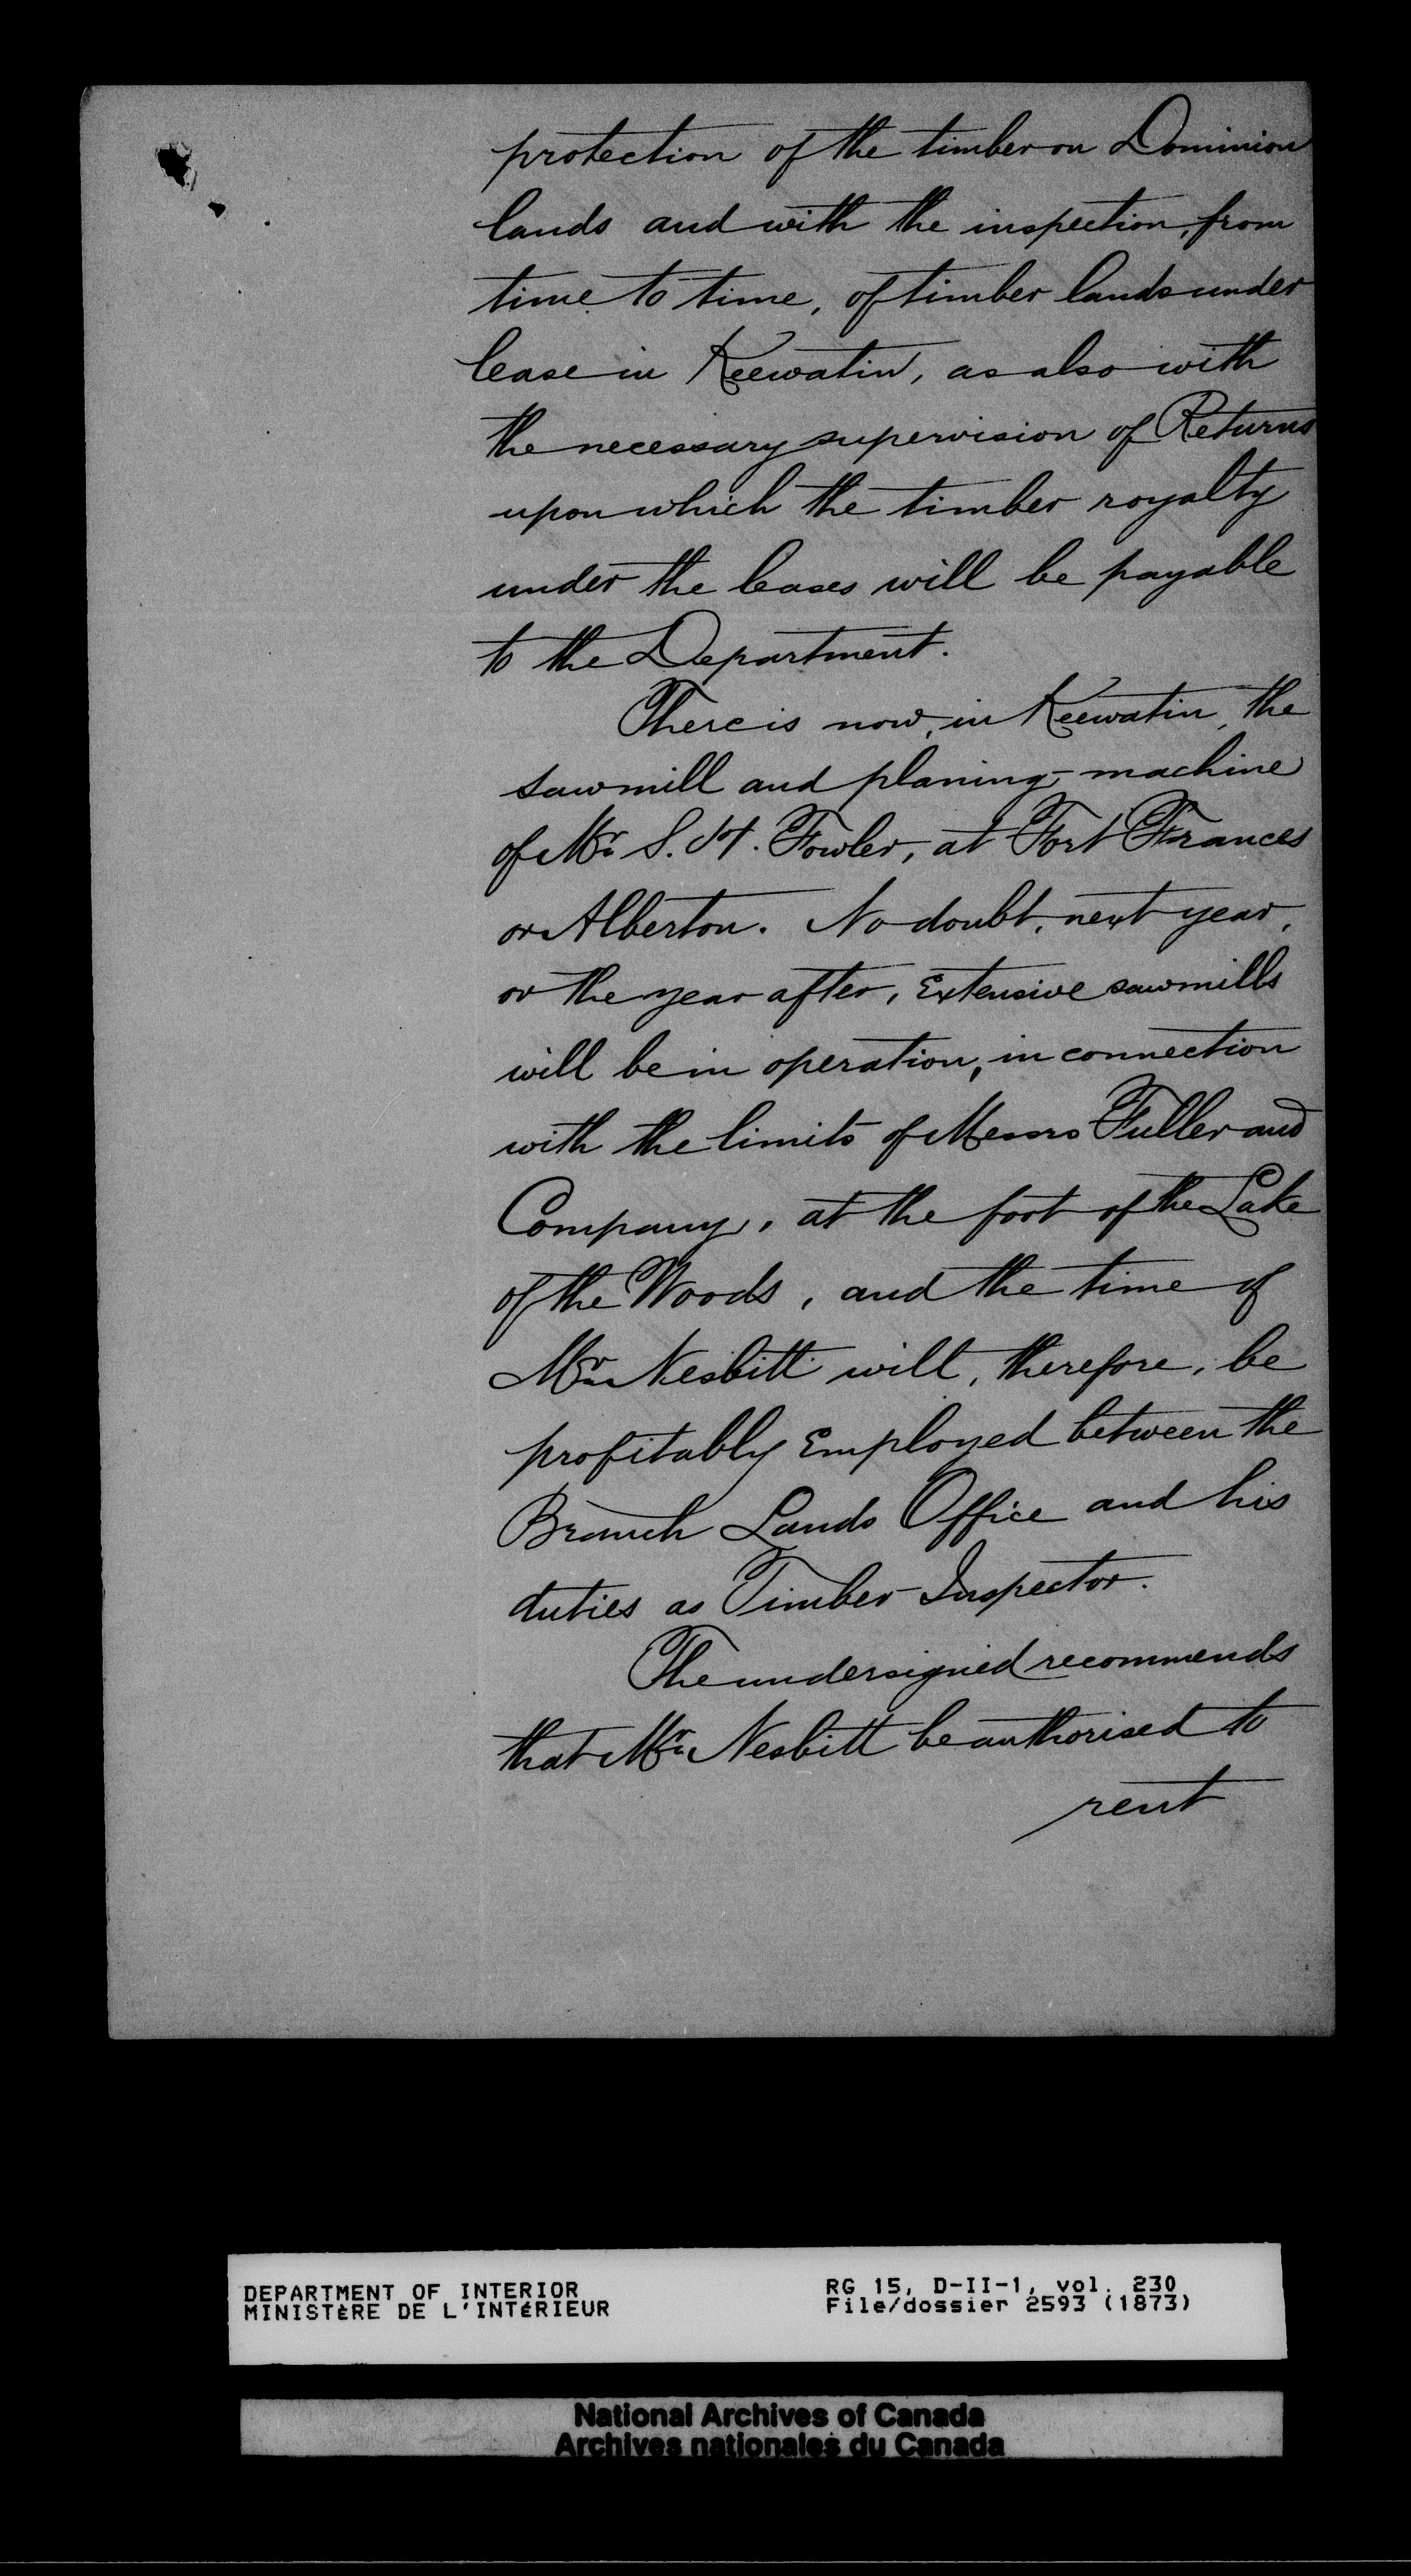 protection of the timber on Dominion
lands and with the inspection, from
time to time, of timber lands under
lease in Keewatin, as also with
the necessary supervision of Returns
upon which the timber royalty
under the leases will be payable
to the Department.
There is now, in Keewatin, the
sawmill and planing-machine
of Mr. S. H. Fowler, at Fort Frances
or Alberton. No doubt, next year,
or the year after, Extensive sawmills
will be in operation, in connection
with the limits of Messrs Fuller and
Company, at the foot of the Lake
of the Woods, and the time of
Mr. Nesbitt will, therefore, be
profitably Employed between the
Branch Lands Office and his
duties as Timber Inspector.
The undersigned recommends
that Mr. Nesbitt be authorised to
rent
DEPARTMENT OF INTERIOR
MINISTÈRE DE L'INTÉRIEUR
RG 15, D-II-1, vol. 230
File/dossier 2593 (1873)
National Archives of Canada
Archives nationales du Canada